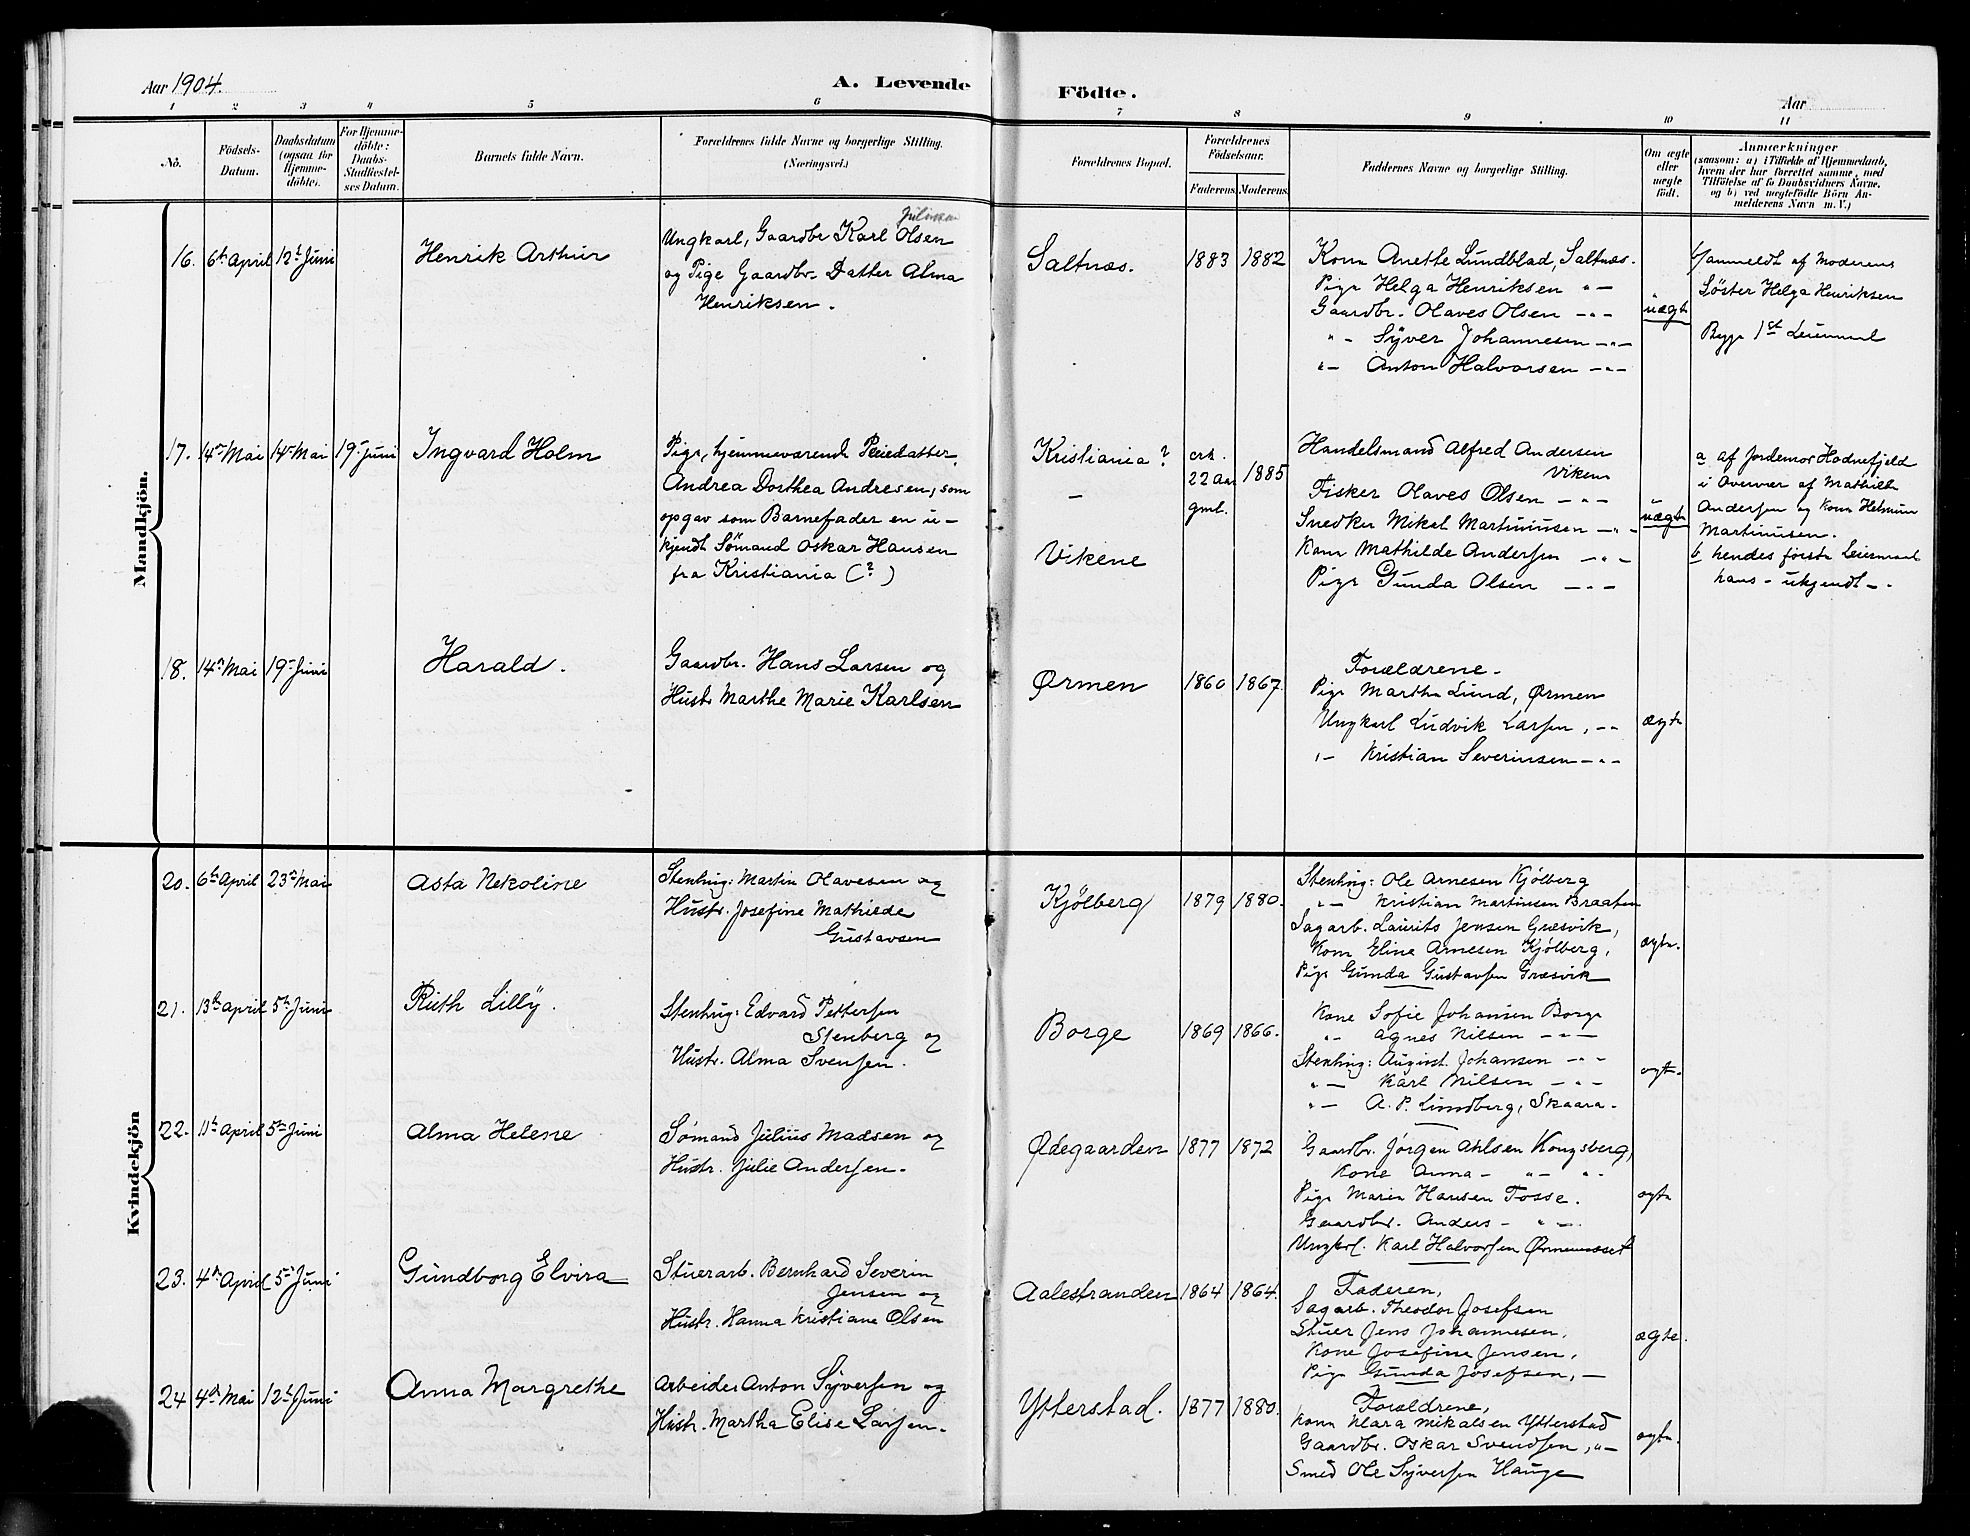 Aar 1904.
A. Levende Födte.
Aar
1 2 3 4 5 6 7 8 9 10 11
No.
Födsels-
Datum.
Daabsdatum
(ogsaa for
Hjemme-
döbte).
For Hjemme-
döbte:
Daabs-
Stadfæstel-
ses Datum.
Barnets fulde Navn.
Forældrenes fulde Navne og borgerlige Stilling.
(Næringsvei.)
Forældrenes Bopæl.
Forældrenes
Födselsaar.
Faderens. Moderens.
Faddernes Navne og borgerlige Stilling.
Om ægte
eller
uægte
födt.
Anmærkninger
(saasom: a) i Tilfælde af Hjemmedaab,
hvem der har forrettet samme, med
Tilföielse af to Daabsvidners Navne,
og b) ved uægtefödte Börn An-
melderens Navn m. V.)
Mandkjön.
16. 6te April 12te Juni
Henrik Arthur
Juliussen
Ungkarl, Gaardbr Karl Olsen
og Pige Gaardbr. Datter Alma
Henriksen.
Saltnæs.
1883 1882
Kone Anette Lundblad, Saltnæs.
Pige Helga Henriksen "-
Gaardbr. Olaves Olsen -"-
"- Syver Johannesen -"-
"- Anton Halvorsen -"-
uægte
b/ anmeldt af Moderens
Søster Helga Henriksen
Begge 1ste Leiermaal
17. 14de Mai 14de Mai 19de Juni
Ingvard Holm
Pige, hjemmeværende Pleiedatter,
Andrea Dorthea Andresen, som
opgav som Barnefader en u-
kjendt Sömand Oskar Hansen
fra Kristiania (?)
Kristiania?
-
Vikene
22 Aar
gml.
1885
Handelsmand Alfred Andersen
Vikene
Fisker Olaves Olsen -"-
Snedker Mikal Martinussen -"-
Kone Mathilde Andersen -"-
Pige Gunda Olsen -"-
uægte
a af Jordemor Hodnefjeld
i Overvær af Mathilde
Andersen og Kone Helmine
Martinusen.
b hendes første Leiermaal
hans - ukjendt -.
18. 14de Mai 19de Juni
Harald.
Gaardbr. Hans Larsen og
Hustr Marthe Marie Karlsen
Ørmen
1860 1867.
Forældrene.
Pige Martha Lund, Ørmen
Ungkarl Ludvik Larsen, -"-
"- Kristian Severinsen -"-
ægte
Kvindekjön
20. 6te April 23de Mai
Asta Nekoline
Stenhug: Martin Olavesen og
Hustr. Josefine Mathilde
Gustavsen
Kjölberg
1879 1880.
Stenhug: Ole Arnesen Kjölberg
"- Kristian Martinsen Braaten
Sagarb. Laurits Jensen Græsvik,
Kone Eline Arnesen Kjølberg,
Pige Gunda Gustavsen Græsvik
ægte.
21. 13de April 5te Juni
Ruth Lilly.
Stenhug: Edvard Pettersen
Stenberg og
Hustr. Alma Svensen.
Borge
1869 1866.
Kone Sofie Johansen Borge
"- Agnes Nilsen -"-
Stenhug: August Johansen -"-
"- Karl Nilsen -"-
"- A. P. Lundberg, Skaara.
ægte.
22. 11te April 5te Juni
Alma Helene
Sømand Julius Madsen og
Hustr. Julie Andersen.
Ødegaarden
1877 1872
Gaardbr. Jørgen Ahlsen Kongsberg,
Kone Anna - "- "-
Pige Marie Hansen Tosse.
Gaardbr. Anders - "-
Ungkrl. Karl Halvorsen Ørmennesset
ægte
23. 4de April 5te Juni
Gundborg Elvira
Stuerarb. Bernhard Severin
Jensen og
Hustr. Hanna Kristiane Olsen
Aalestranden
1864 1864.
Faderen,
Sagarb. Theodor Josefsen
Stuer Jens Johannesen,
Kone Josefine Jensen,
Pige Gunda Josefsen, -
ægte.
24 4de Mai 12te Juni
Anna Margrethe
Arbeider Anton Syversen og
Hustr. Martha Elise Larsen.
Ytterstad.
1877 1880.
Forældrene,
Kone Klara Mikalsen Ytterstad
Gaardbr. Oskar Svendsen, "-
Smed Ole Syversen Hauge
ægte.